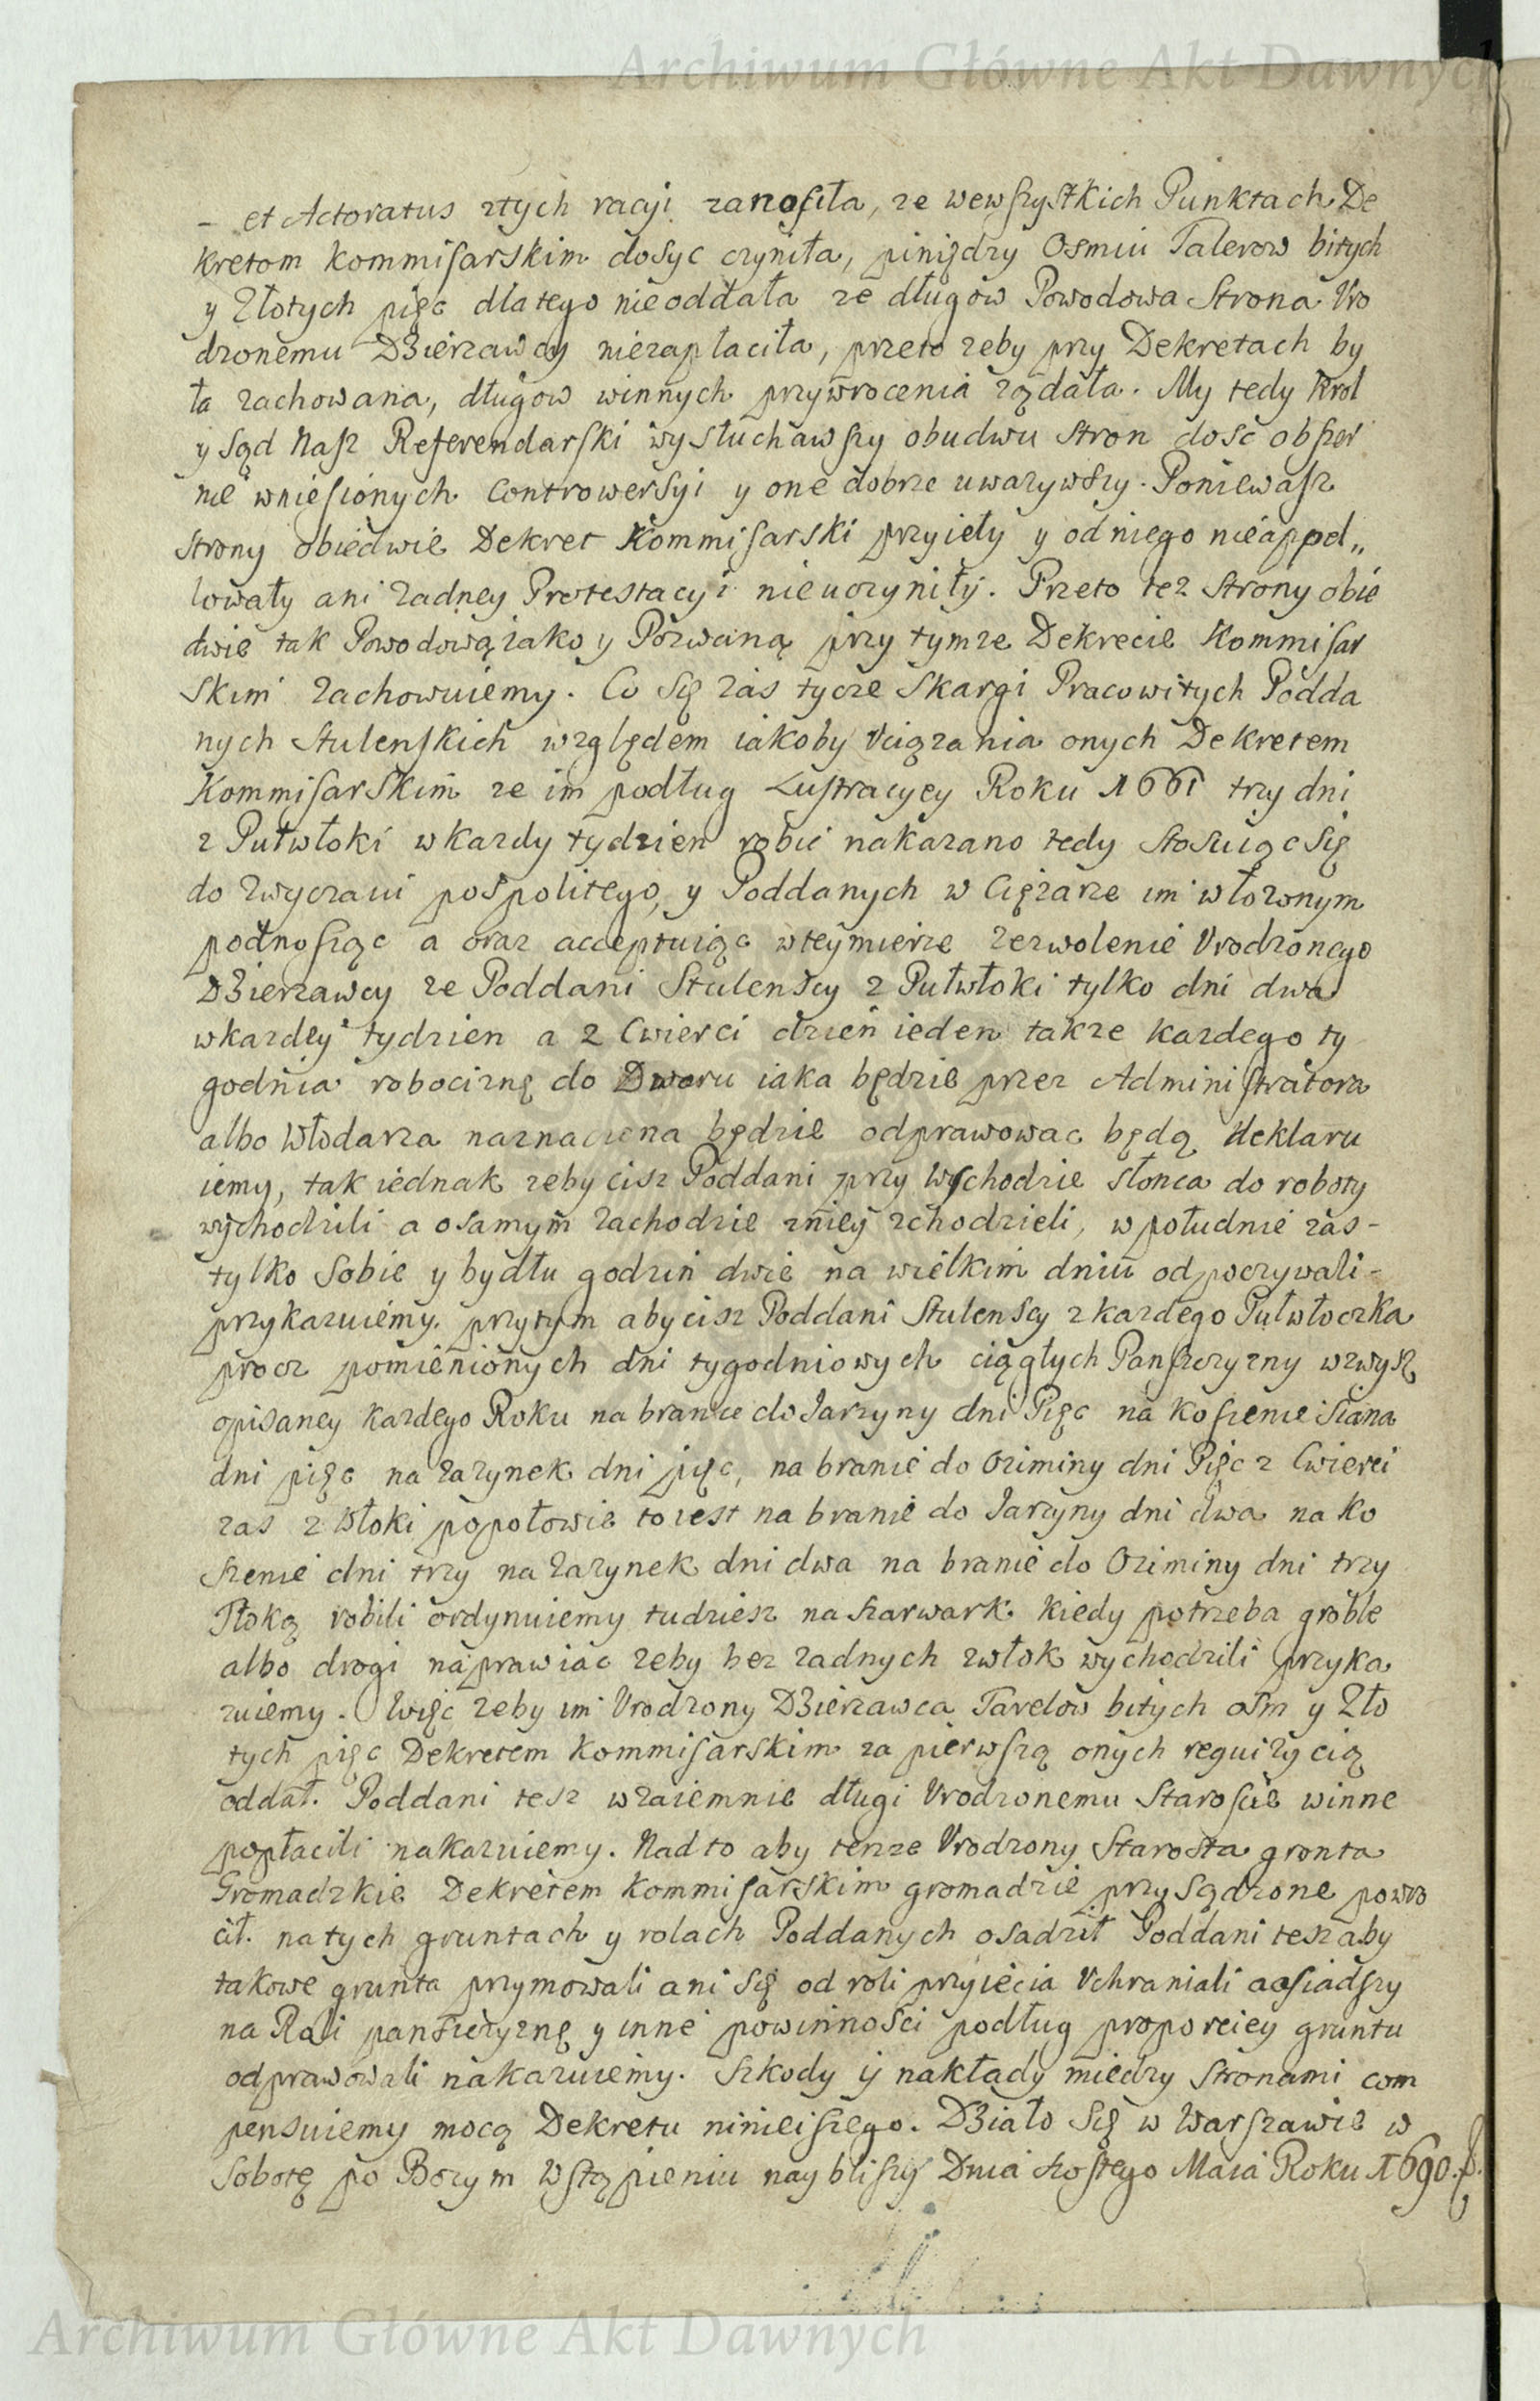 Archiwum Główne Akt Dawnych
– et Actoratus ztych racyi zanosiła, ze wewszystkich Punktach De
kretom kommisarskim dosyc czyniła, piniędzy Osmiu Talerow bitych
y Złotych pięc dlatego nieoddała ze długow Powodowa Strona Vro
dzonemu Dzierzawcy niezapłaciła, przeto zeby przy Dekretach by
ła zachowana, długow winnych przywrocenia ządała. My tedy Krol
y Sąd Nasz Referendarski wysłuchawszy obudwu stron dosc obszer
nie wniesionych Controwersyi y one dobrze uwazywszy. Poniewasz
strony obiedwie Dekret Kommisarski przyieły y od niego nieappel„
lowały ani zadney Protestacyi nieuczyniły. Przeto tez strony obie
dwie tak Powodową iako y Pozwaną przy tymze Dekrecie Kommisar
skim zachowuiemy. Co Się zas tycze skargi Pracowitych Podda
nych Stulenskich względem iakoby Vciązania onych Dekretem
Kommisarskim ze im podług Lustracyey Roku 1661 trzy dni
z Pułwłoki wkazdy tydzien robic nakazano tedy stosuiąc Się
do zwyczaiu pospolitego, y Poddanych w Cięzarze im włozonym
podnosząc a oraz acceptuiąc wteymierze zezwolenie Vrodzonego
Dzierzawcy ze Poddani Stulenscy z Pułwłoki tylko dni dwa
wkazdey tydzien a z Cwierci dzien ieden takze kazdego ty
godnia robociznę do Dworu iaka będzie przez Administratora
albo Włodarza naznaczena będzie odprawowac będą deklaru
iemy, tak iednak zeby cisz Poddani przy Wschodzie słonca do roboty
wychodzili a osamym zachodzie zniey zchodzieli, wpołudnie zas–
tylko Sobie y bydłu godzin dwie na wielkim dniu odpoczywali–
przykazuiemy. przytym aby cisz Poddani Stulenscy z kazdego Pułwłoczka
procz pomienionych dni tygodniowych ciągłych Panszczyzny wzwysz
opisaney kazdego Roku na branie do Jarzyny dni Pięc na koszenie Siana
dni pięc na zazynek dni pięc, na branie do Oziminy dni Pięc z Cwierci
zas z Włoki popołowie to iest na branie do Jarzyny dni dwa na ko
szenie dni trzy na zazynek dni dwa na branie do Oziminy dni trzy
Tłoką robili ordynuiemy tudziesz na szarwark kiedy potrzeba groble
albo drogi naprawiac zeby bez zadnych zwłok wychodzili przyka
zuiemy. Więc zeby im Vrodzony Dzierzawca Tarelow bitych osm y Zło
tych pięc Dekretem Kommisarskim za pierwszą onych reguizycią
oddał. Poddani tesz wzaiemnie długi Vrodzonemu Staroscie winne
popłacili nakazuiemy. Nad to aby tenze Vrodzony Starosta gronta
Gromadzkie Dekretem Kommisarskim gromadzie przysądzone powro
cił. na tych gruntach y rolach Poddanych osadził Poddani tesz aby
takowe grunta przymowali ani Się od roli przyiecia Vchraniali a osiadszy
na Roli panszczyznę y inne powinnosci podług proporciey gruntu
odprawowali nakazuiemy. Szkody y nakłady miedzy Stronami com
pensuiemy mocą Dekretu ninieiszego. Działo Się w Warszawie w
Sobotę po Bozym Wstąpieniu nayblizszy Dnia szostego Maia Roku 1690.
Archiwum Główne Akt Dawnych